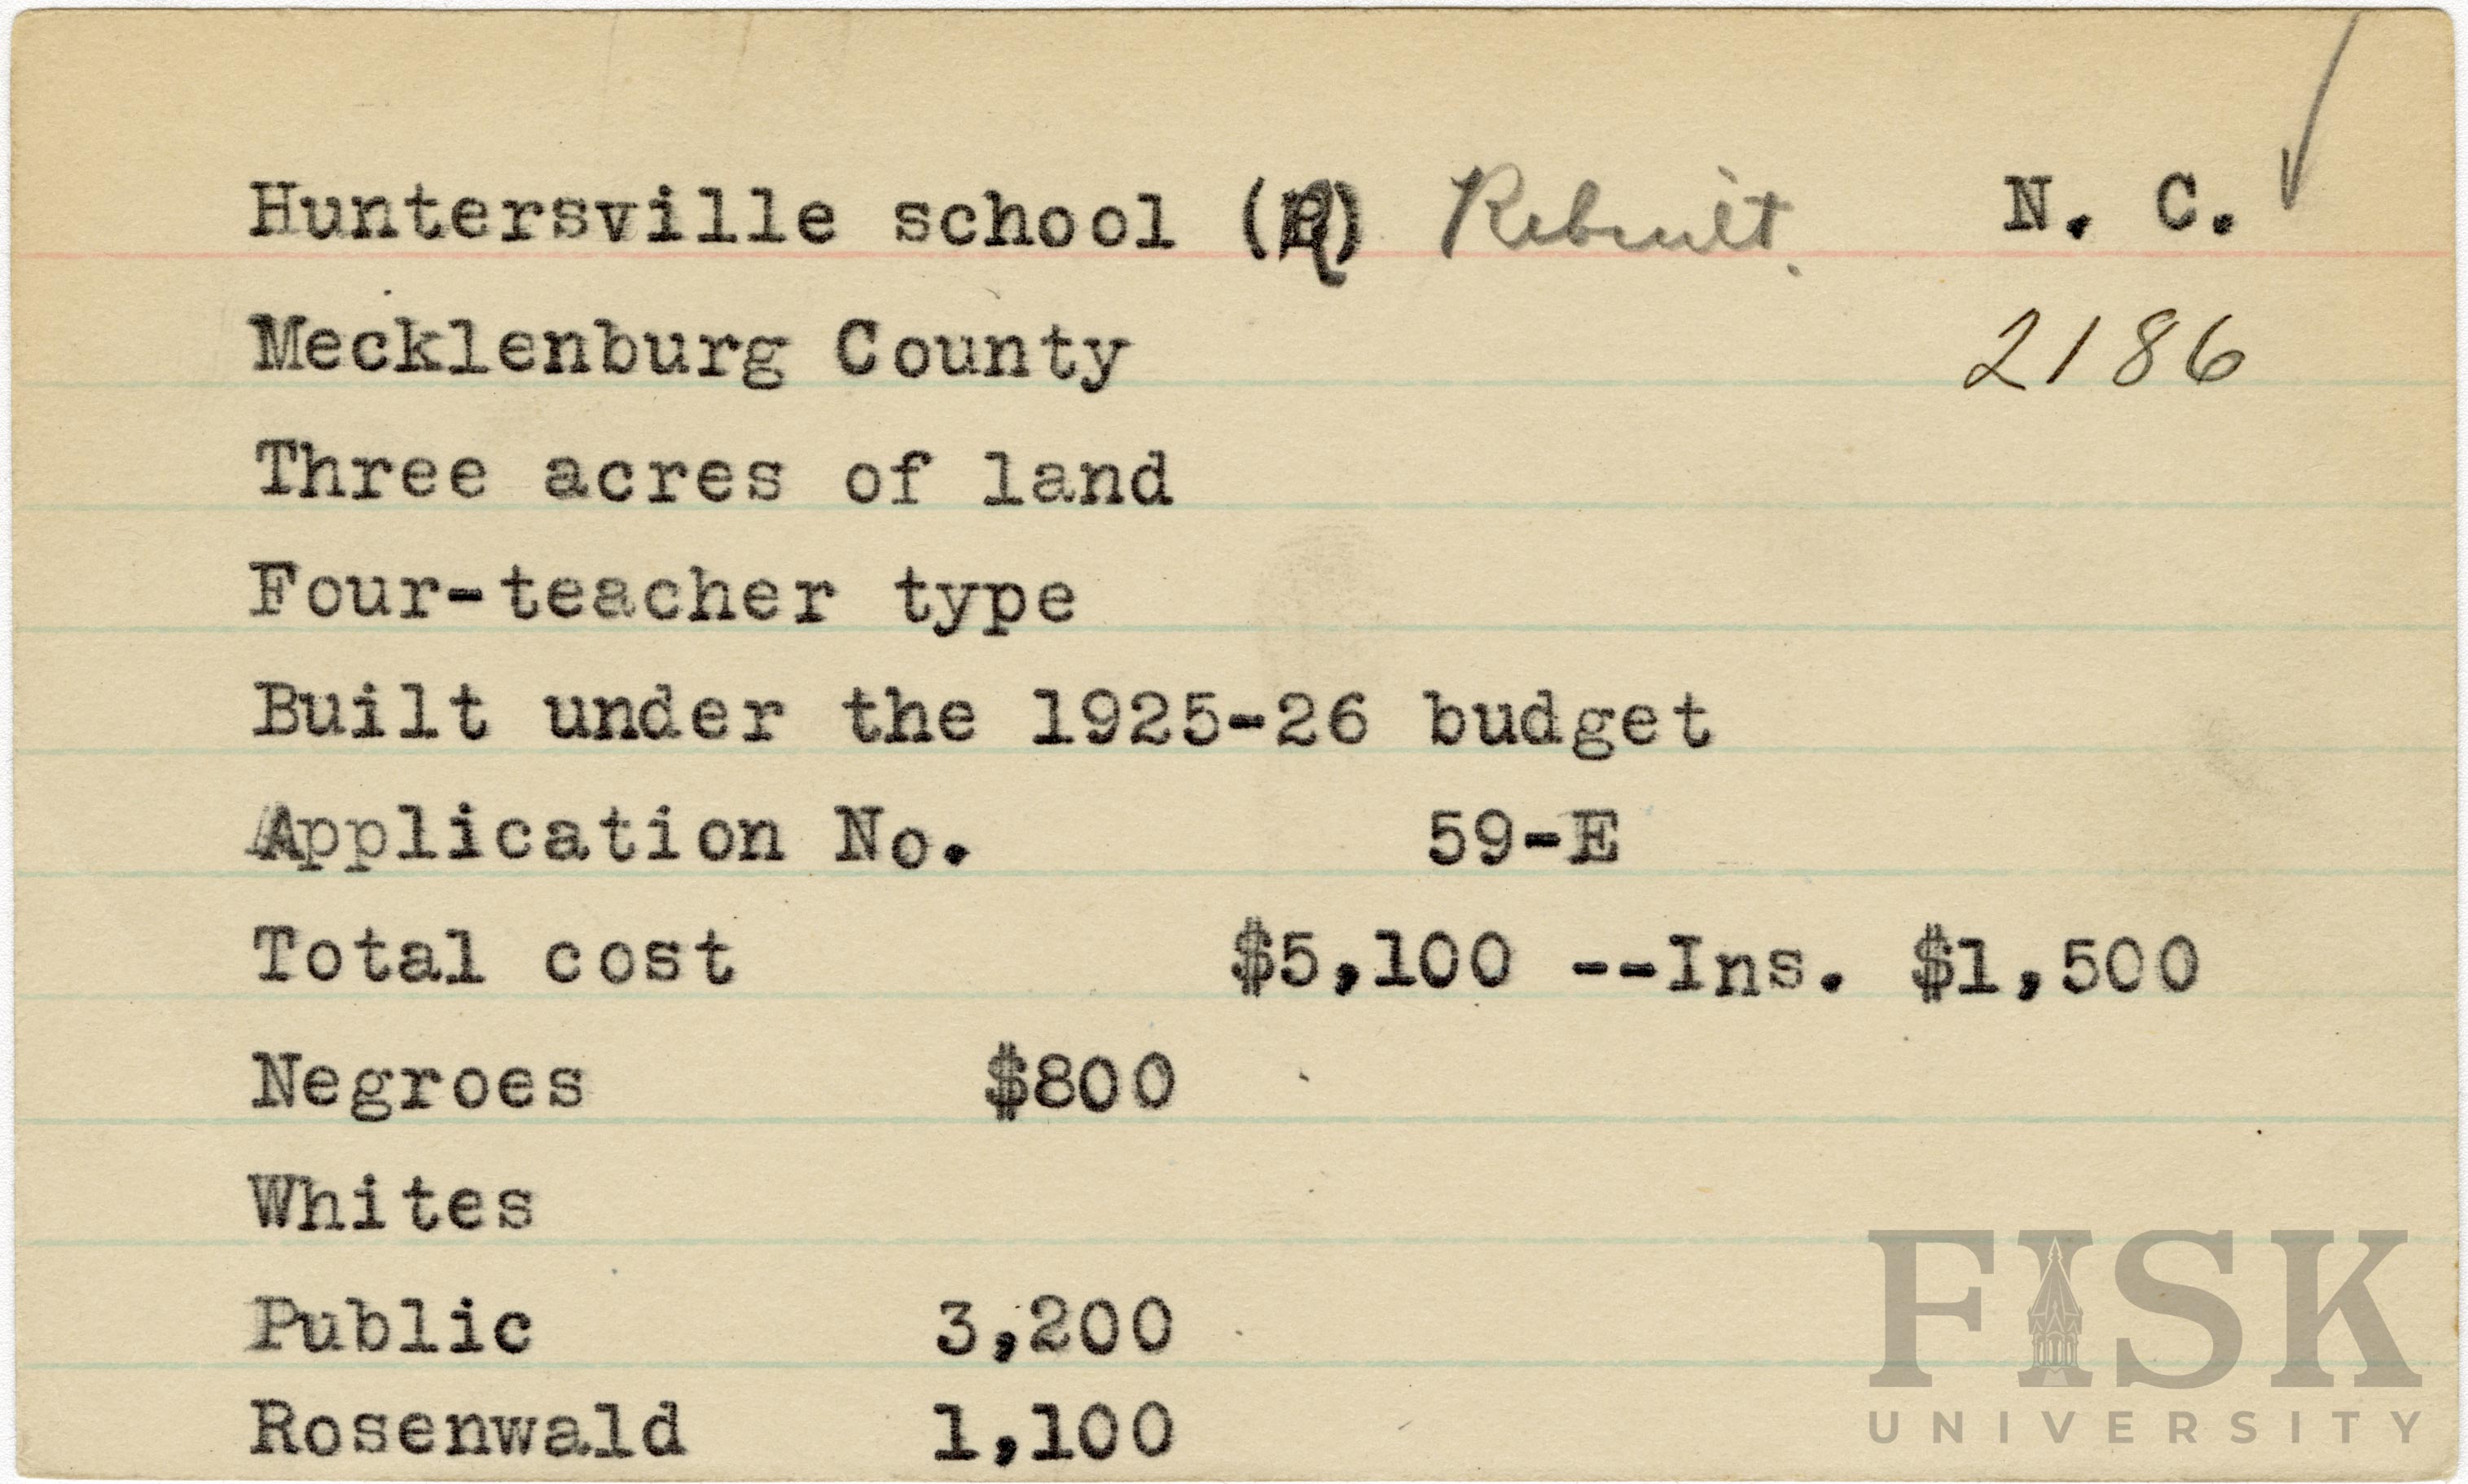 Huntersville school (R) Rebuilt. N. C.
Mecklenburg County 2186
Three acres of land
Four-teacher type
Built under the 1925-26 budget
Application No. 59-E
Total cost $5,100 --Ins. $1,500
Negroes $800
Whites
Public 3,200
Rosenwald 1,100
FISK
UNIVERSITY